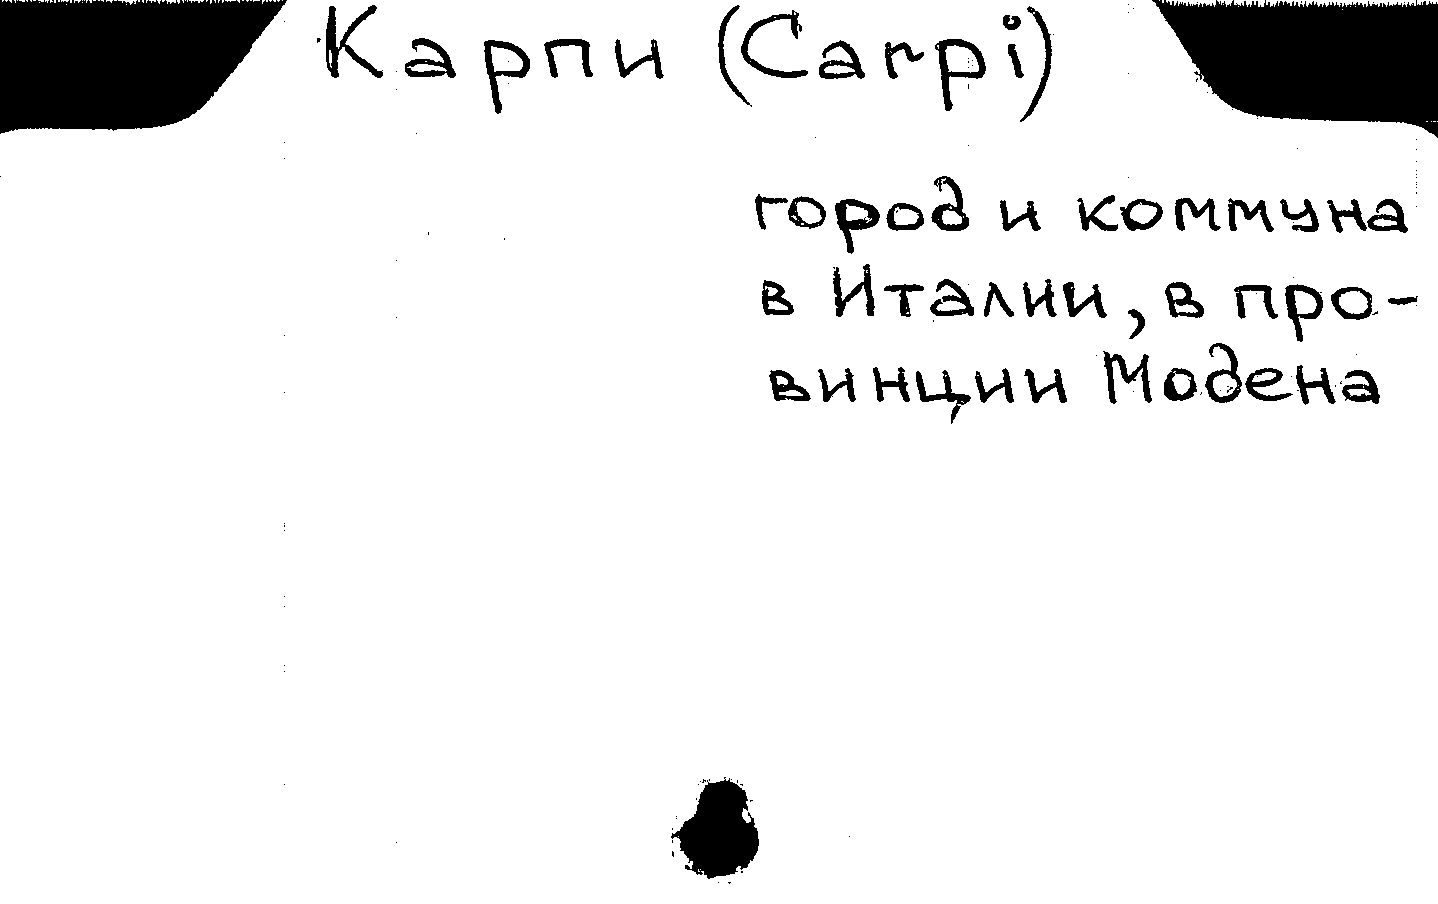 Карпи (Carpi)
город и коммуна
в Италии, в про-
винции Модена